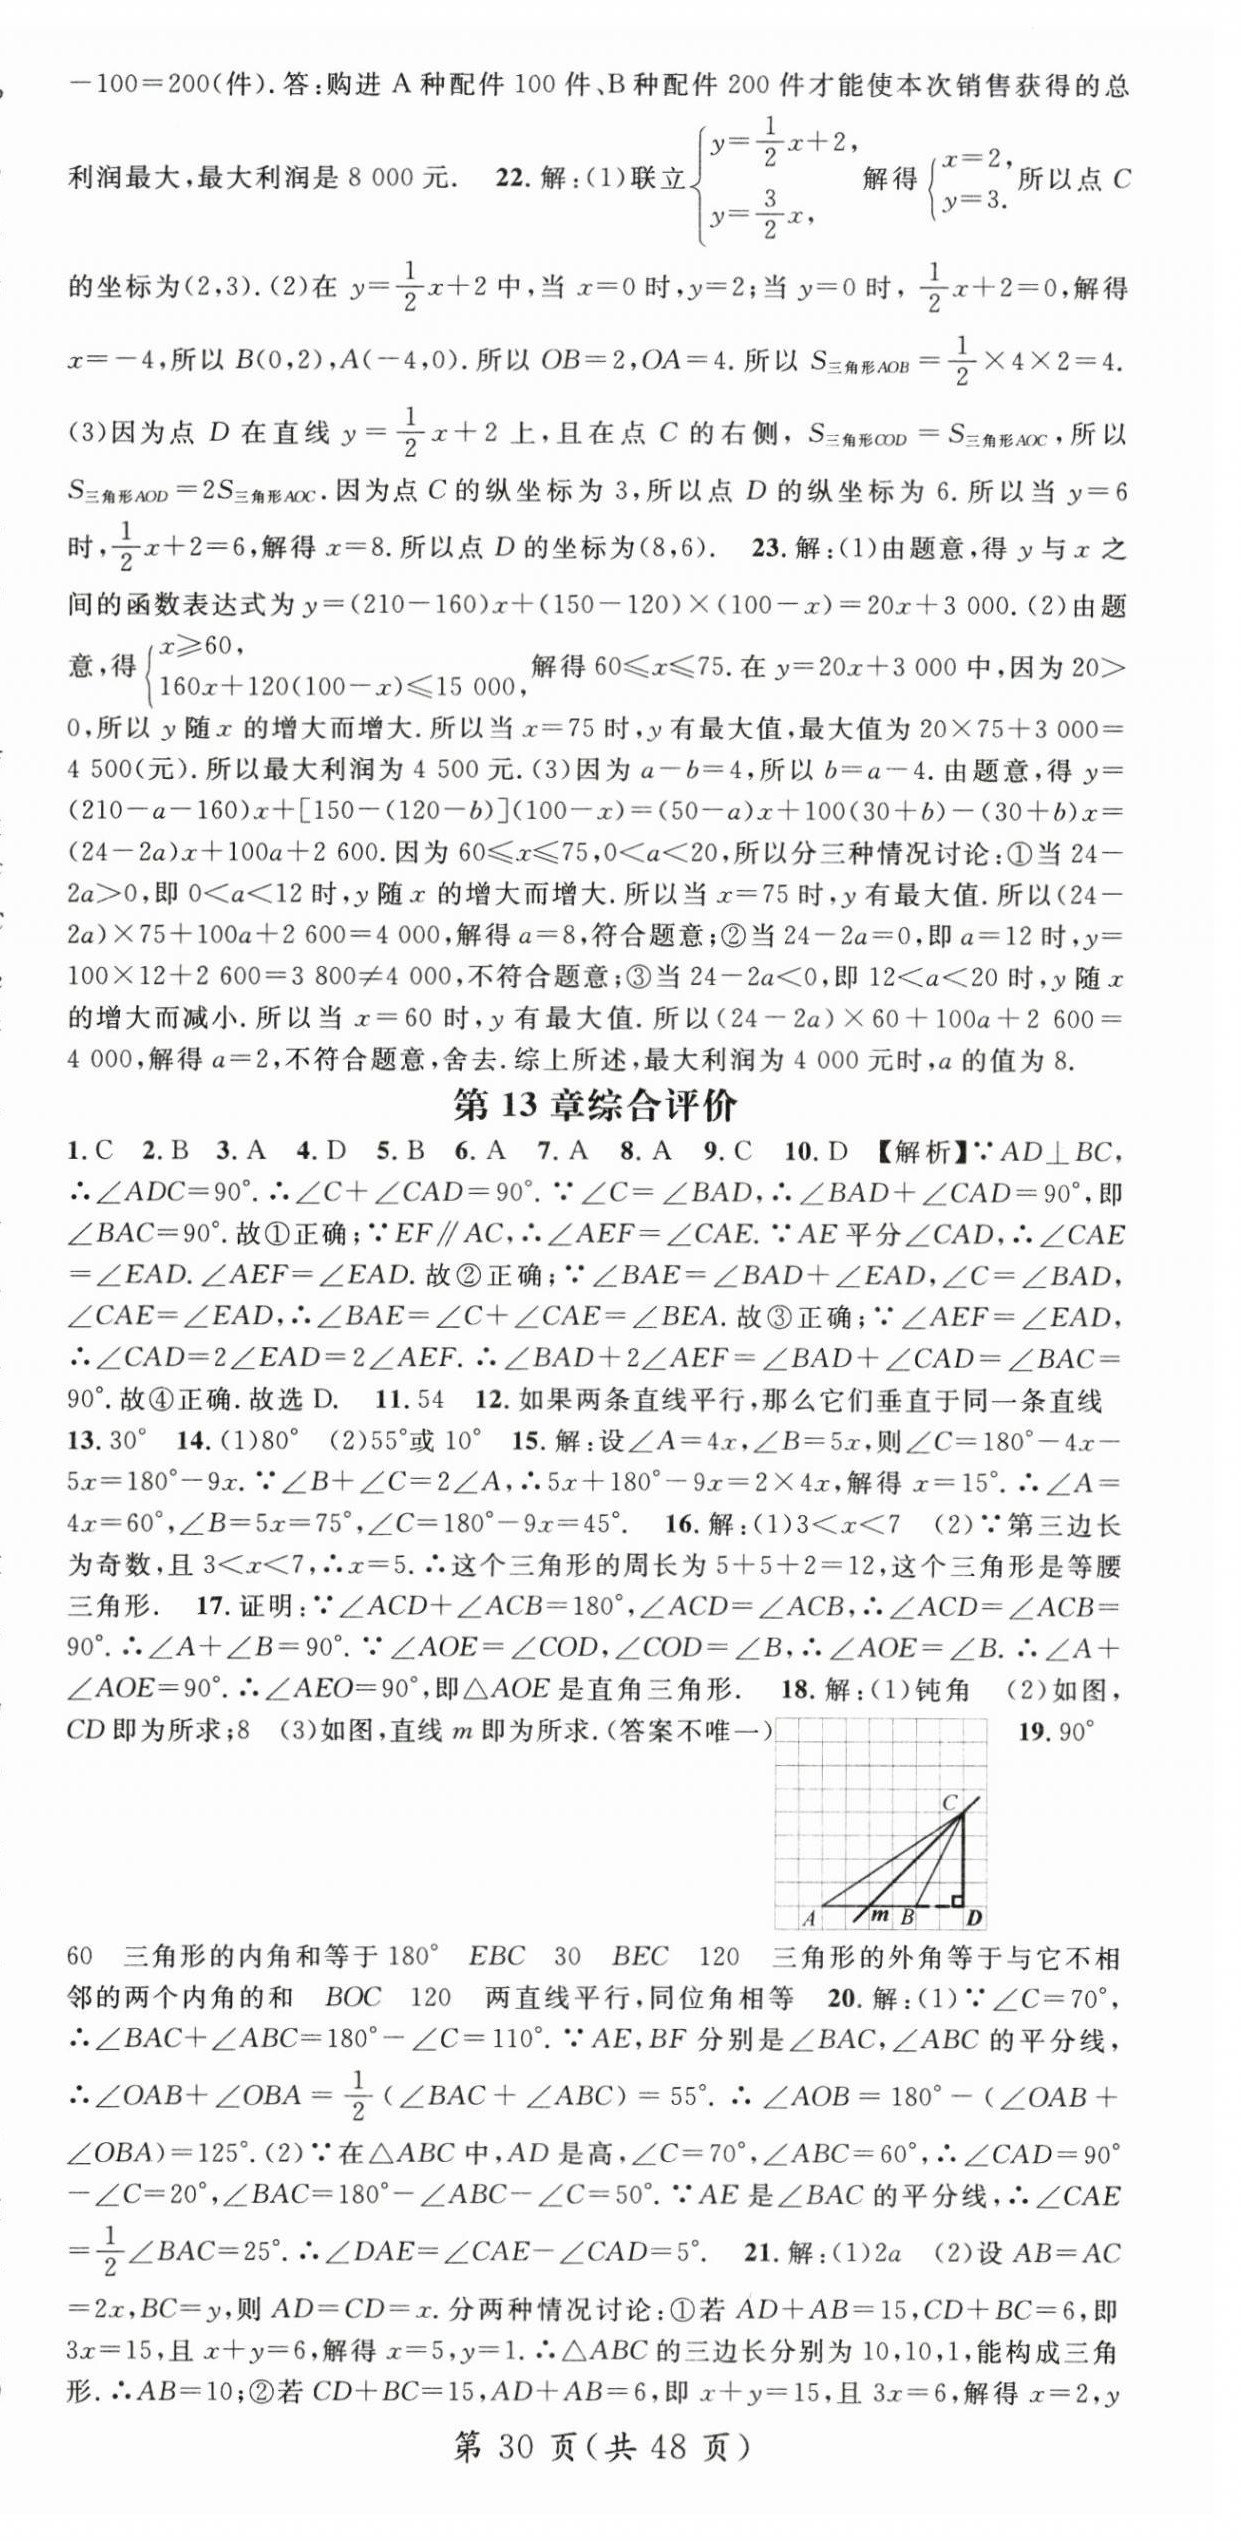 －100＝200(件).答:购进 A 种配件 100 件、B 种配件 200 件才能使本次销售获得的总
利润最大,最大利润是 8 000 元. 22.解:(1)联立{y＝1/2x＋2, y＝3/2x, 解得{x＝2, y＝3. 所以点 C
的坐标为(2,3).(2)在 y＝1/2x＋2 中,当 x＝0 时,y＝2;当 y＝0 时, 1/2x＋2＝0,解得
x＝－4,所以 B(0,2),A(－4,0).所以 OB＝2,OA＝4.所以 S三角形AOB＝1/2×4×2＝4.
(3)因为点 D 在直线 y＝1/2x＋2 上,且在点 C 的右侧, S三角形COD＝S三角形AOC,所以
S三角形AOD＝2S三角形AOC.因为点 C 的纵坐标为 3,所以点 D 的纵坐标为 6.所以当 y＝6
时,1/2x＋2＝6,解得 x＝8.所以点 D 的坐标为(8,6). 23.解:(1)由题意,得 y 与 x 之
间的函数表达式为 y＝(210－160)x＋(150－120)×(100－x)＝20x＋3 000.(2)由题
意,得{x≥60, 160x＋120(100－x)≤15 000, 解得 60≤x≤75.在 y＝20x＋3 000 中,因为 20＞
0,所以 y 随 x 的增大而增大.所以当 x＝75 时,y 有最大值,最大值为 20×75＋3 000＝
4 500(元).所以最大利润为 4 500 元.(3)因为 a－b＝4,所以 b＝a－4.由题意,得 y＝
(210－a－160)x＋[150－(120－b)](100－x)＝(50－a)x＋100(30＋b)－(30＋b)x＝
(24－2a)x＋100a＋2 600.因为 60≤x≤75,0＜a＜20,所以分三种情况讨论:①当 24－
2a＞0,即 0＜a＜12 时,y 随 x 的增大而增大.所以当 x＝75 时,y 有最大值.所以(24－
2a)×75＋100a＋2 600＝4 000,解得 a＝8,符合题意;②当 24－2a＝0,即 a＝12 时,y＝
100×12＋2 600＝3 800≠4 000,不符合题意;③当 24－2a＜0,即 12＜a＜20 时,y 随 x
的增大而减小.所以当 x＝60 时,y 有最大值.所以(24－2a)×60＋100a＋2 600＝
4 000,解得 a＝2,不符合题意,舍去.综上所述,最大利润为 4 000 元时,a 的值为 8.
第 13 章综合评价
1.C 2.B 3.A 4.D 5.B 6.A 7.A 8.A 9.C 10.D 【解析】∵AD⊥BC,
∴∠ADC＝90°.∴∠C＋∠CAD＝90°.∵∠C＝∠BAD,∴∠BAD＋∠CAD＝90°,即
∠BAC＝90°.故①正确;∵EF∥AC,∴∠AEF＝∠CAE.∵AE 平分∠CAD,∴∠CAE
＝∠EAD.∠AEF＝∠EAD.故②正确;∵∠BAE＝∠BAD＋∠EAD,∠C＝∠BAD,
∠CAE＝∠EAD,∴∠BAE＝∠C＋∠CAE＝∠BEA.故③正确;∵∠AEF＝∠EAD,
∴∠CAD＝2∠EAD＝2∠AEF.∴∠BAD＋2∠AEF＝∠BAD＋∠CAD＝∠BAC＝
90°.故④正确.故选 D. 11.54 12.如果两条直线平行,那么它们垂直于同一条直线
13.30° 14.(1)80° (2)55°或 10° 15.解:设∠A＝4x,∠B＝5x,则∠C＝180°－4x－
5x＝180°－9x.∵∠B＋∠C＝2∠A,∴5x＋180°－9x＝2×4x,解得 x＝15°.∴∠A＝
4x＝60°,∠B＝5x＝75°,∠C＝180°－9x＝45°. 16.解:(1)3＜x＜7 (2)∵第三边长
为奇数,且 3＜x＜7,∴x＝5.∴这个三角形的周长为 5＋5＋2＝12,这个三角形是等腰
三角形. 17.证明:∵∠ACD＋∠ACB＝180°,∠ACD＝∠ACB,∴∠ACD＝∠ACB＝
90°.∴∠A＋∠B＝90°.∵∠AOE＝∠COD,∠COD＝∠B,∴∠AOE＝∠B.∴∠A＋
∠AOE＝90°.∴∠AEO＝90°,即△AOE 是直角三角形. 18.解:(1)钝角 (2)如图,
CD 即为所求;8 (3)如图,直线 m 即为所求.(答案不唯一) 19.90°
C
A m B D
60 三角形的内角和等于 180° EBC 30 BEC 120 三角形的外角等于与它不相
邻的两个内角的和 BOC 120 两直线平行,同位角相等 20.解:(1)∵∠C＝70°,
∴∠BAC＋∠ABC＝180°－∠C＝110°.∵AE,BF 分别是∠BAC,∠ABC 的平分线,
∴∠OAB＋∠OBA＝1/2(∠BAC＋∠ABC)＝55°.∴∠AOB＝180°－(∠OAB＋
∠OBA)＝125°.(2)∵在△ABC 中,AD 是高,∠C＝70°,∠ABC＝60°,∴∠CAD＝90°
－∠C＝20°,∠BAC＝180°－∠ABC－∠C＝50°.∵AE 是∠BAC 的平分线,∴∠CAE
＝1/2∠BAC＝25°.∴∠DAE＝∠CAE－∠CAD＝5°. 21.解:(1)2a (2)设 AB＝AC
＝2x,BC＝y,则 AD＝CD＝x.分两种情况讨论:①若 AD＋AB＝15,CD＋BC＝6,即
3x＝15,且 x＋y＝6,解得 x＝5,y＝1.∴△ABC 的三边长分别为 10,10,1,能构成三角
形.∴AB＝10;②若 CD＋BC＝15,AD＋AB＝6,即 x＋y＝15,且 3x＝6,解得 x＝2,y
第 30 页(共 48 页)